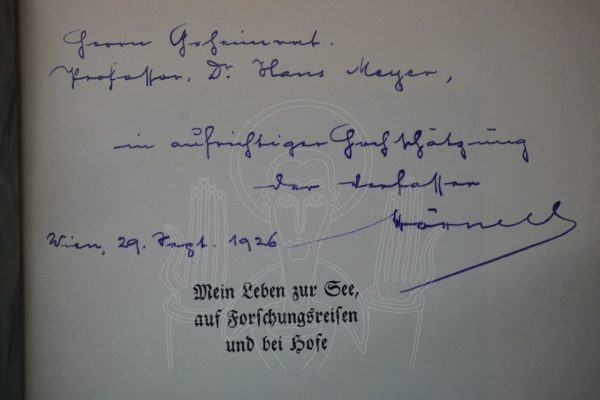 Herrn Geheimrat.
Professor. Dr Hans Meyer,
in aufrichtiger Hochschätzung
der Verfasser
Höhnel
Wien, 29. Sept. 1926
Mein Leben zur See,
auf Forschungsreisen
und bei Hofe